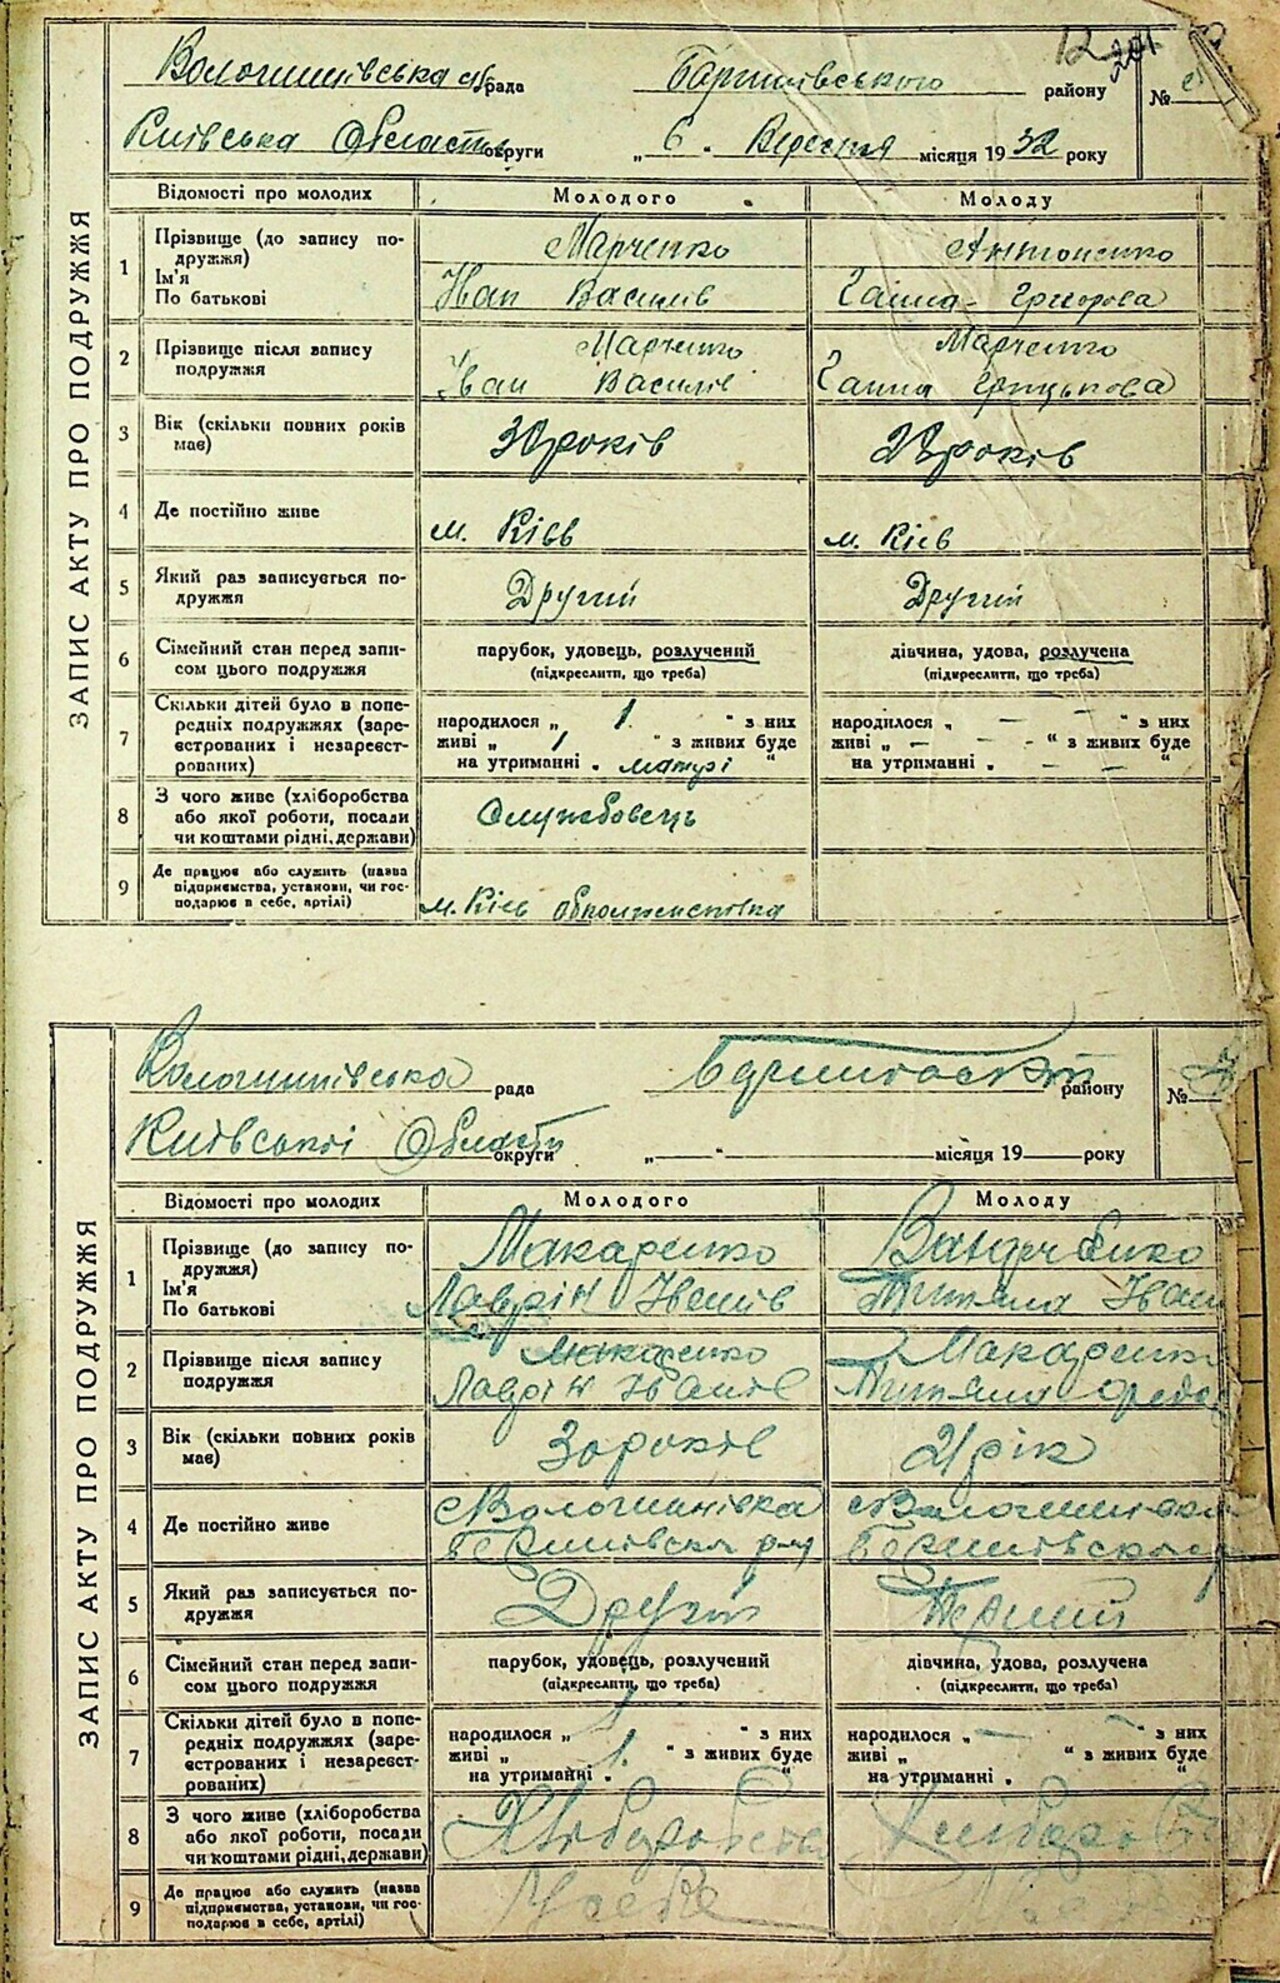 12 201
ЗАПИС АКТУ ПРО ПОДРУЖЖЯ
Волошинівська с/рада Баришівського району №
Київська Область округи „ 6 " Вересня місяця 1932 року
Відомості про молодих Молодого Молоду
1 Прізвище (до запису по- Марченко Антоненко
дружжя)
Ім'я Іван Василів Ганна Григорова
По батькові
2 Прізвище після запису Марченко Марченко
подружжя Іван Василів Ганна Грицькова
3 Вік (скільки повних років років років
має)
4 Де постійно живе м. Київ м. Київ
5 Який раз записується по- Другий Другий
дружжя
6 Сімейний стан перед запи- парубок, удовець, розлучений дівчина, удова, розлучена
сом цього подружжя (підкреслити, що треба) (підкреслити, що треба)
7 Скільки дітей було в попе- народилося „ 1. " з них народилося „ — — " з них
редніх подружжях (заре- живі „ 1 " з живих буде живі „ — — - " з живих буде
єстрованих і незареєст- на утриманні „ матері " на утриманні „ — — "
рованих)
8 З чого живе (хліборобства Службовець
або якої роботи, посади
чи коштами рідні, держави)
9 Де працює або служить (назва м. Київ
підприємства, установи, чи гос-
подарює в себе, артілі)
ЗАПИС АКТУ ПРО ПОДРУЖЖЯ
Волошинівська рада району № 7
Київської Області округи „ — " місяця 19 — року
Відомості про молодих Молодого Молоду
1 Прізвище (до запису по- Макаренко
дружжя)
Ім'я Лаврін Іванів Титяна Іван
По батькові
2 Прізвище після запису Макаренко Макаренк
подружжя Лаврін Іванів Титяна
3 Вік (скільки повних років 30 років 21 рік
має)
4 Де постійно живе с Волошинівка с Волошинівка
5 Який раз записується по- Другий Перший
дружжя
6 Сімейний стан перед запи- парубок, удовець, розлучений дівчина, удова, розлучена
сом цього подружжя (підкреслити, що треба) (підкреслити, що треба)
7 Скільки дітей було в попе- народилося „ 1 " з них народилося „ — — " з них
редніх подружжях (заре- живі „ 1. " з живих буде живі „ " з живих буде
єстрованих і незареєст- на утриманні „ " на утриманні „ "
рованих)
8 З чого живе (хліборобства Хліборобства
або якої роботи, посади
чи коштами рідні, держави)
9 Де працює або служить (назва У себе
підприємства, установи, чи гос-
подарює в себе, артілі)